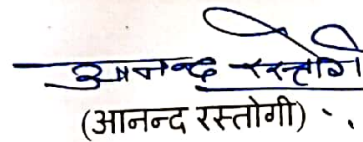 आनन्द रस्तोगी
(आनन्द रस्तोगी)